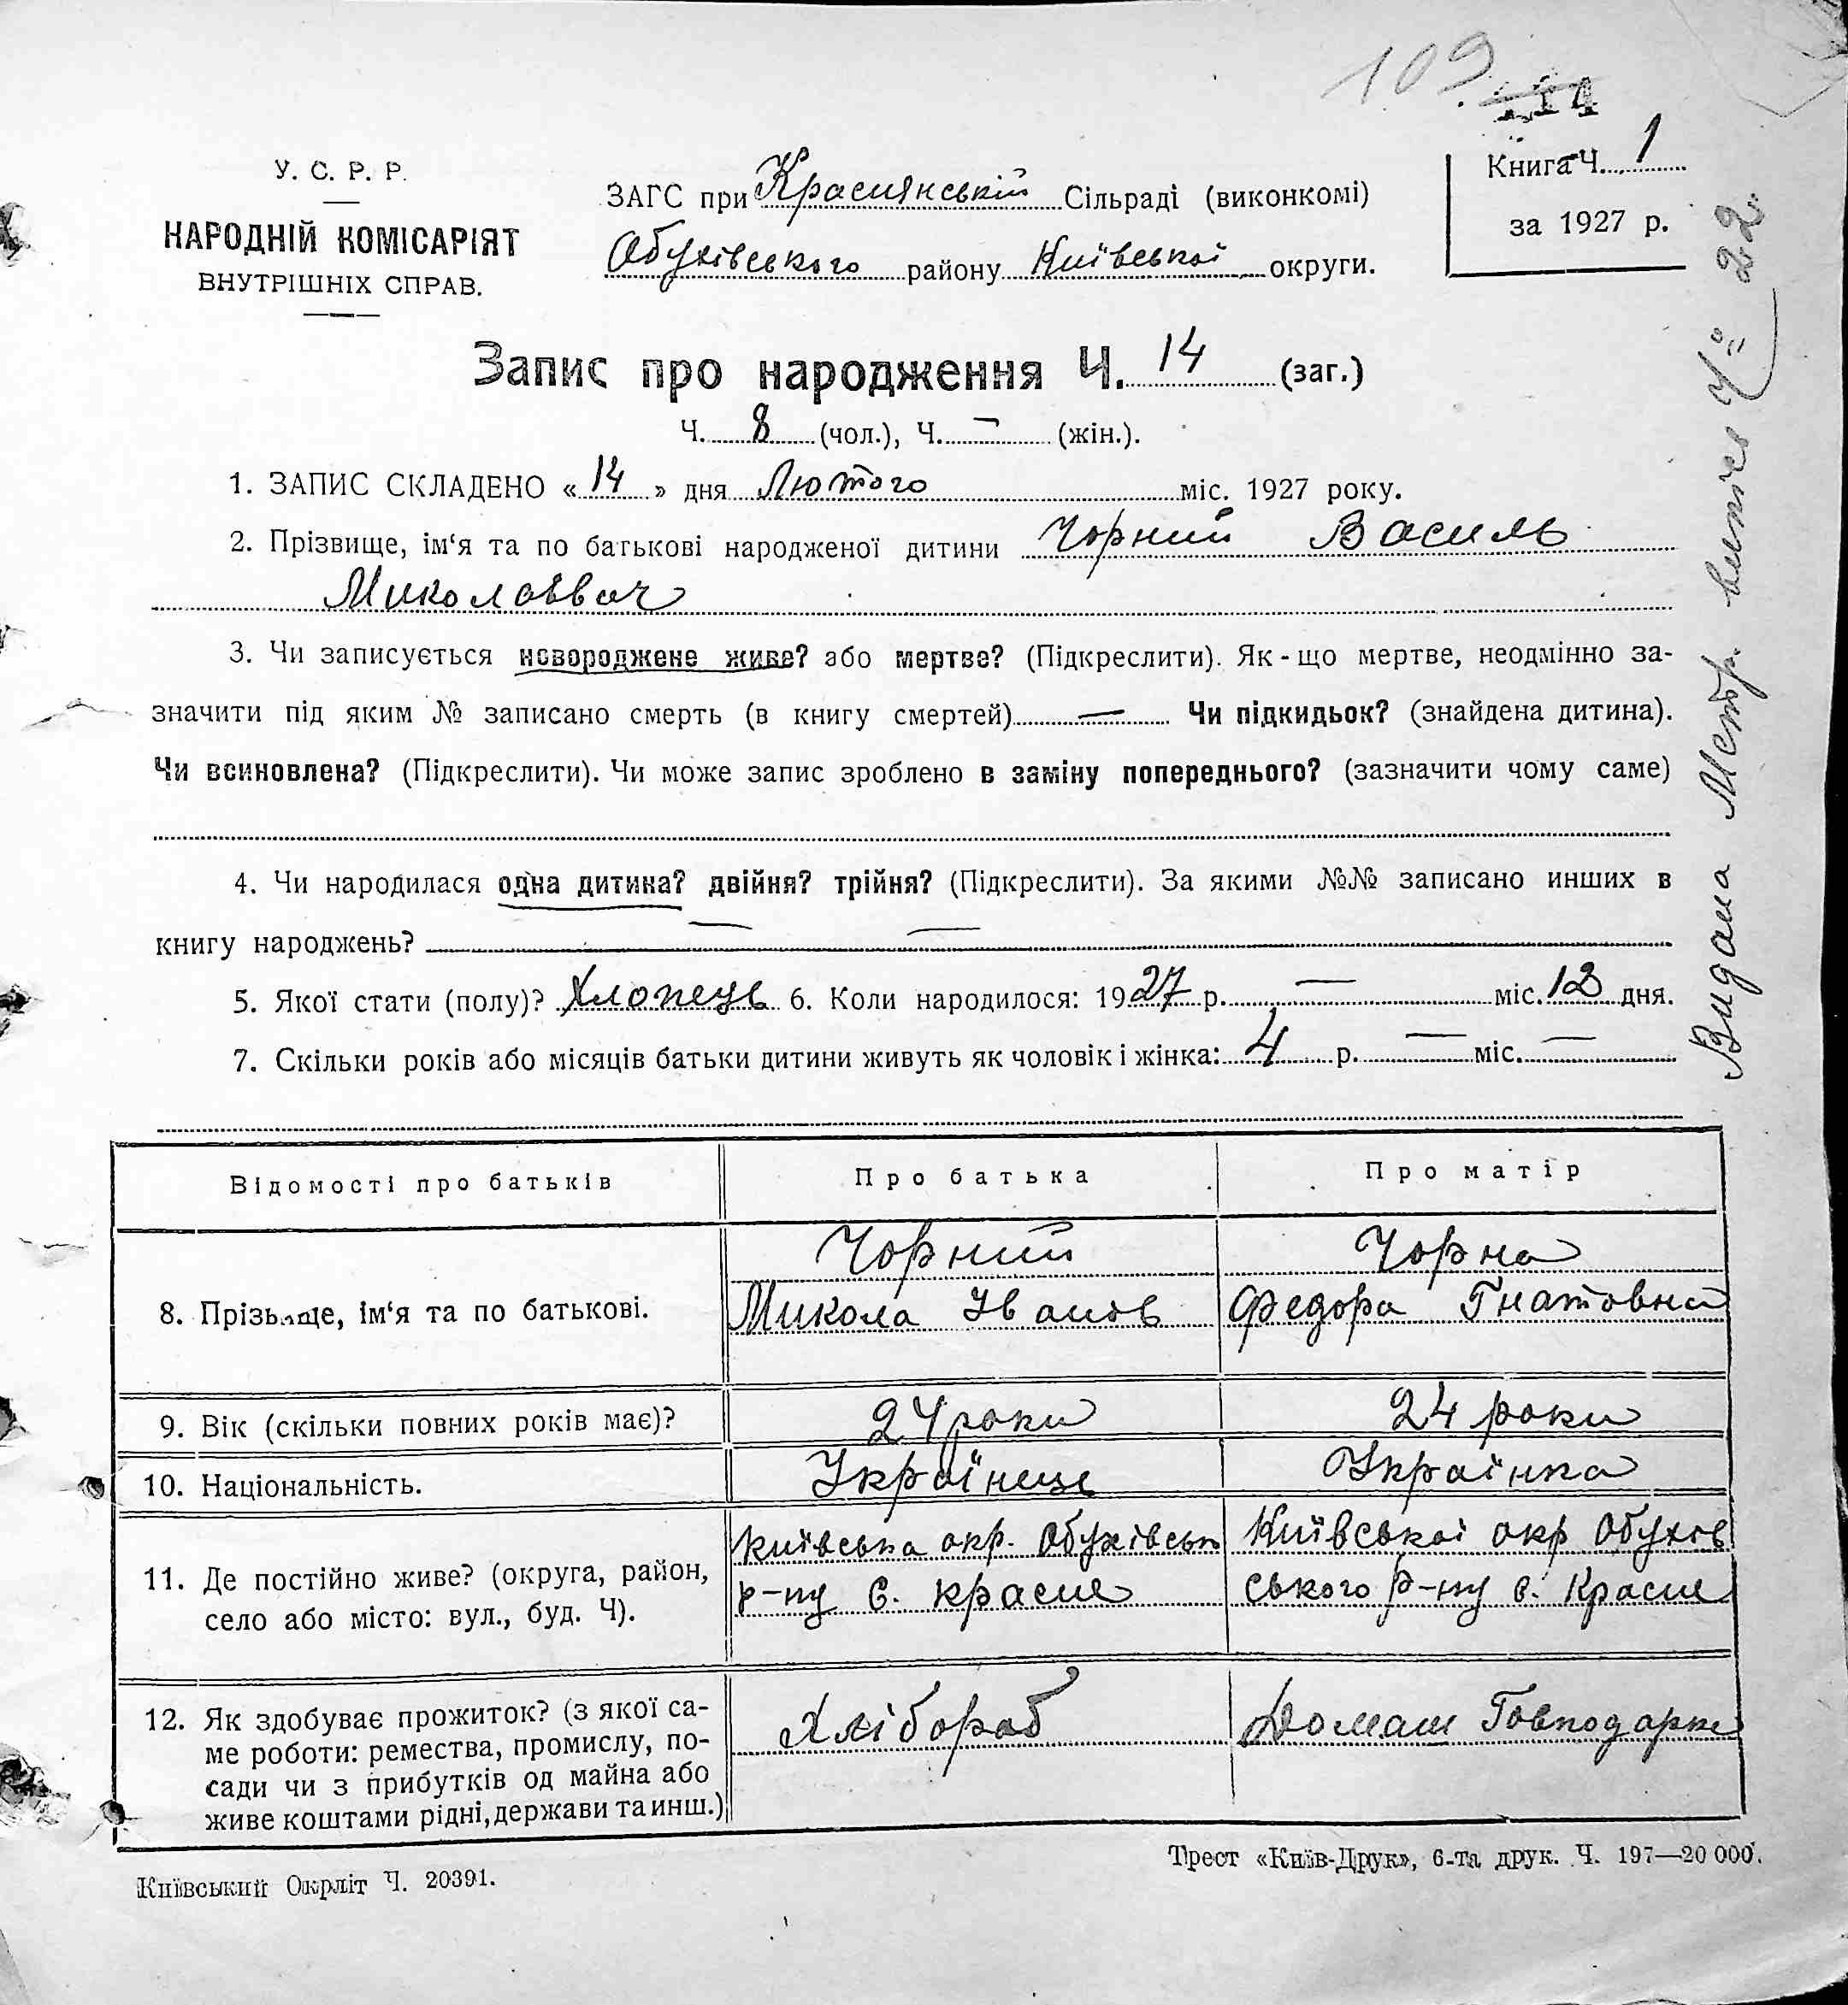 109
У. С. Р. Р.
НАРОДНІЙ КОМІСАРІЯТ
ВНУТРІШНІХ СПРАВ.
ЗАГС при Краснянській Сільраді (виконкомі)
Обухівського району Київської округи.
Книга Ч. 1
за 1927 р.
Запис про народження Ч. 14 (заг.)
Ч. 8 (чол.), Ч. — (жін.).
1. ЗАПИС СКЛАДЕНО «14» дня Лютого міс. 1927 року.
2. Прізвище, ім‘я та по батькові народженої дитини Чорний Василь
Миколаєвич
3. Чи записується новороджене живе? або мертве? (Підкреслити). Як-що мертве, неодмінно за-
значити під яким № записано смерть (в книгу смертей) — Чи підкидьок? (знайдена дитина).
Чи всиновлена? (Підкреслити). Чи може запис зроблено в заміну попереднього? (зазначити чому саме)
4. Чи народилася одна дитина? двійня? трійня? (Підкреслити). За якими №№ записано инших в
книгу народжень? — —
5. Якої стати (полу)? Хлопець 6. Коли народилося: 1927 р. — міс. 12 дня.
7. Скільки років або місяців батьки дитини живуть як чоловік і жінка: 4 р. — міс. —
Видана Метр. випись Ч. 22
Відомості про батьків Про батька Про матір
8. Прізвище, ім‘я та по батькові.
Чорний
Микола Іванов
Чорна
Федора Гнатовна
9. Вік (скільки повних років має)? 24 роки 24 роки
10. Національність. Українець Українка
11. Де постійно живе? (округа, район,
село або місто: вул., буд. Ч).
Київська окр. Обухівськ
р-ну с. Красне
Київської окр Обухів
ського р-ну с. Красне
12. Як здобуває прожиток? (з якої са-
ме роботи: ремества, промислу, по-
сади чи з прибутків од майна або
живе коштами рідні, держави та инш.)
Хлібороб
Домаш Господарка
Київський Окрліт Ч. 20391.
Трест «Київ-Друк», 6-та друк. Ч. 197—20 000.